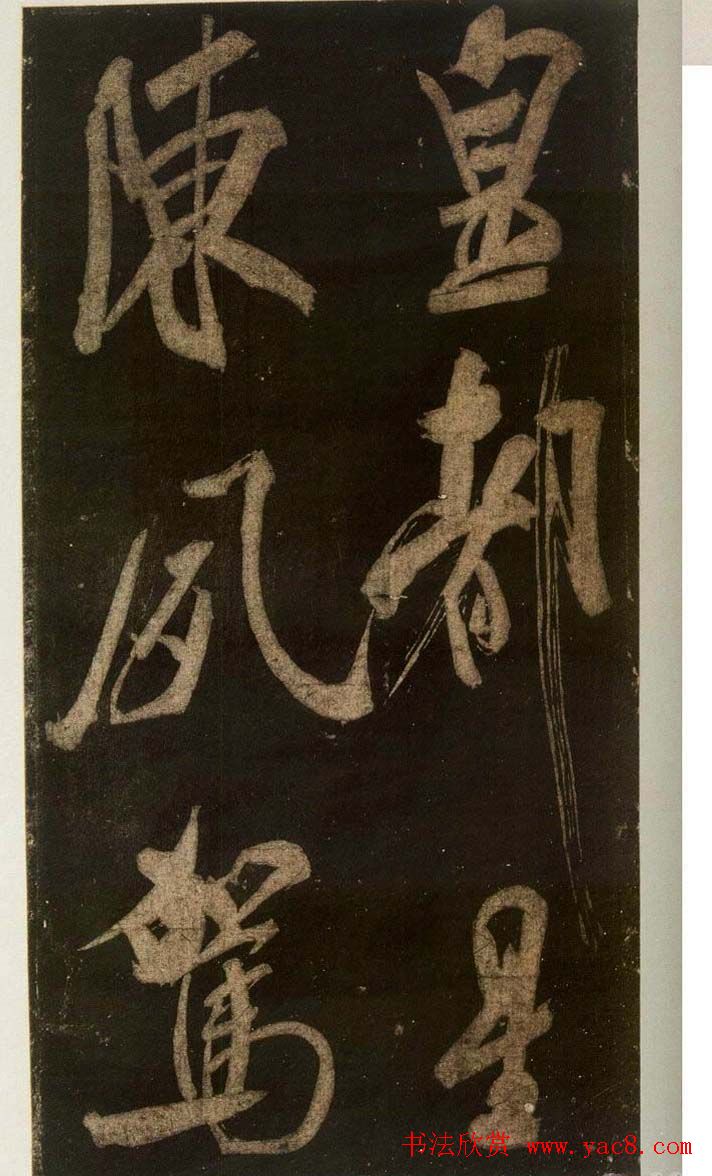 皇都星
陳夙駕
书法欣赏 www.yac8.com